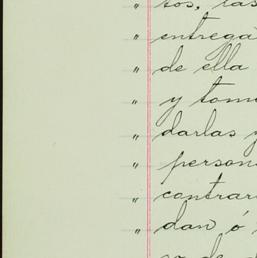 " tos, las
" entrega
" de ella
" y tom
" darlas y
" person
" contrar
" dan ó
so de